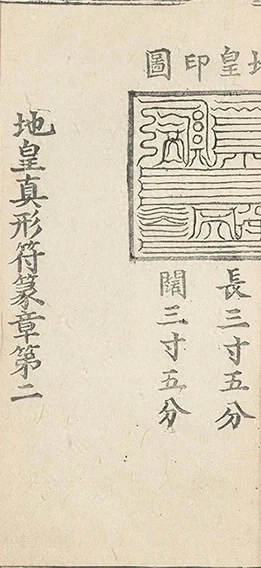 地皇印圖
長三寸五分
闊三寸五分
地皇真形符篆章第二